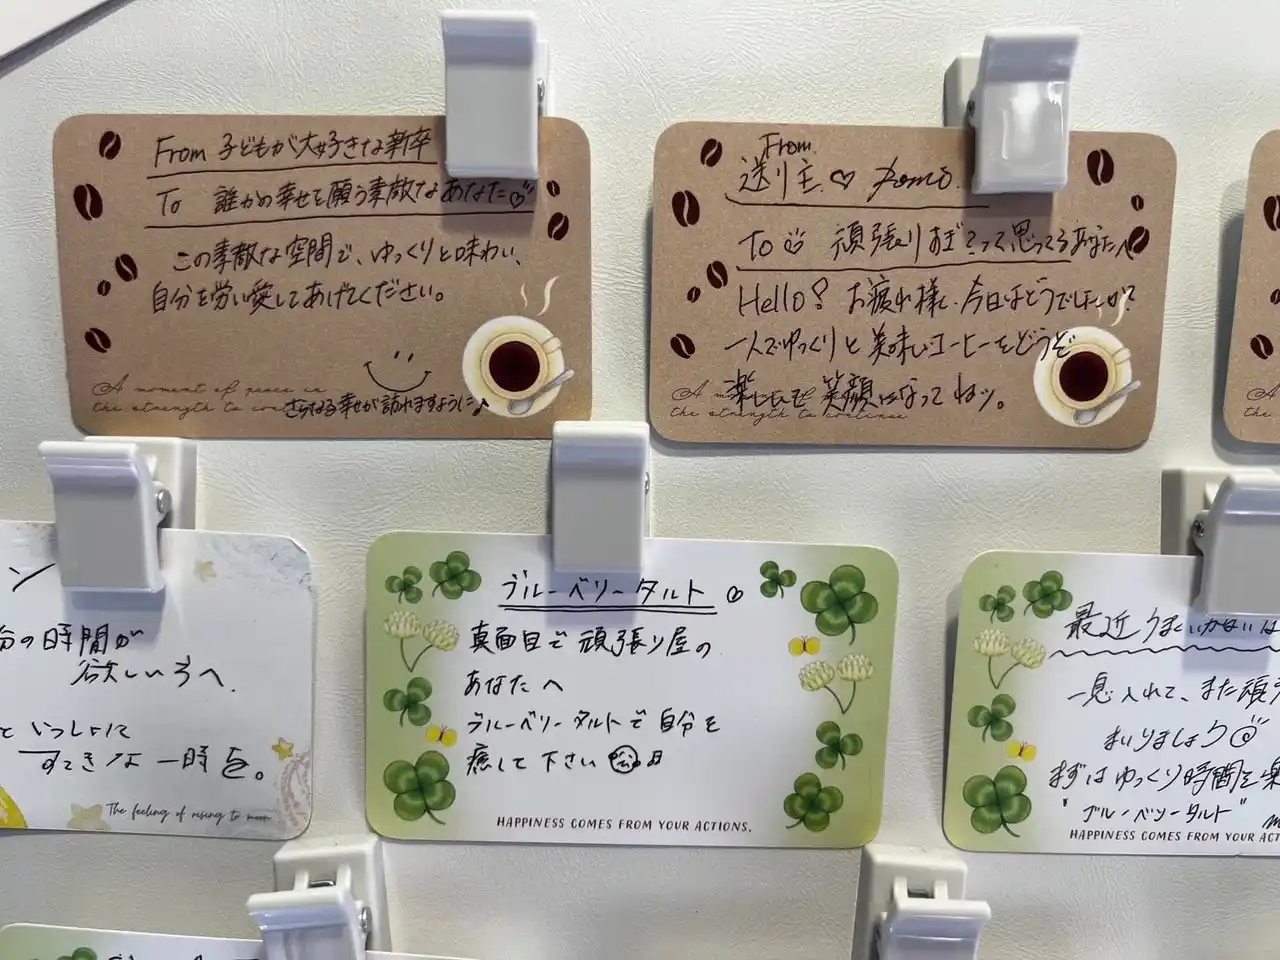 From 子どもが大好きな新卒
To 誰かの幸せを願う素敵なあなた
この素敵な空間で、ゆっくりと味わい、
自分を労い愛してあげてください。
A moment of peace is
the strength to
さらなる幸せが訪れますように♪
From
送り主
To 頑張りすぎ?って思ってるあなたへ
Hello! お疲れ様、今日はどうでしたか?
一人でゆっくりと美味しいコーヒーをどうぞ
楽しんで笑顔になってねッ。
the strength to continue
ン
分の時間が
欲しい方へ.
といっしょに
すてきな一時を。
The feeling of rising to moon
ブルーベリータルト
真面目で頑張り屋の
あなたへ
ブルーベリータルトで自分を
癒して下さい
HAPPINESS COMES FROM YOUR ACTIONS.
最近うまくいかないは
一息入れて、また頑
まいりましょう
まずはゆっくり時間を楽
"ブルーベリータルト"
HAPPINESS COMES FROM YOUR ACT